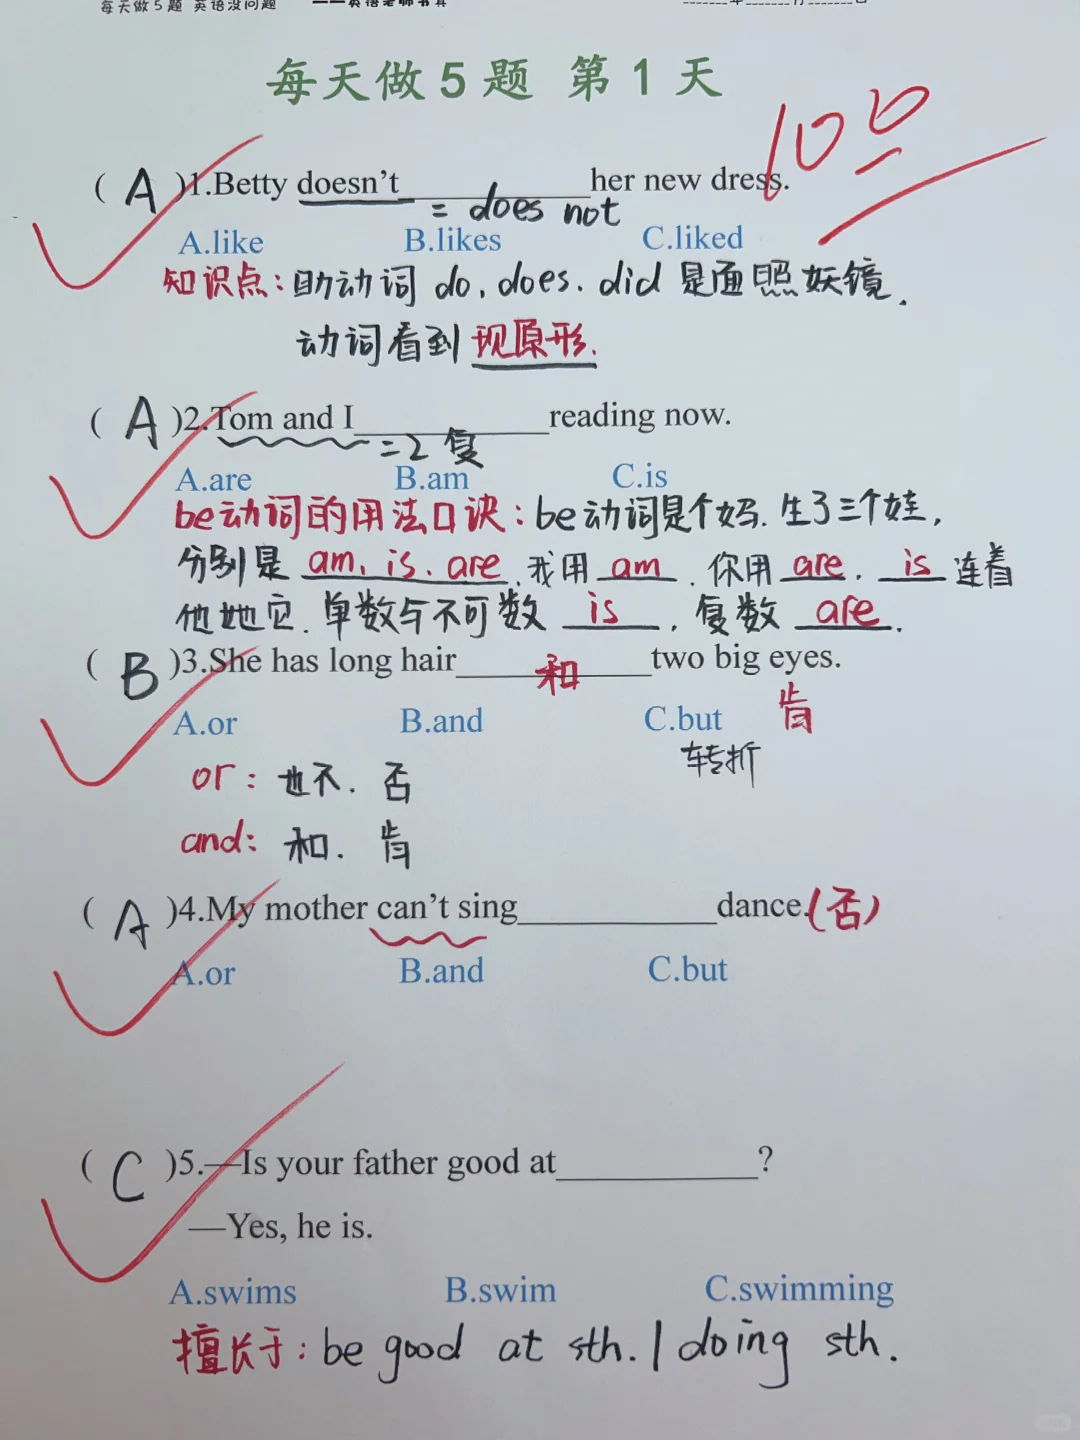 每天做5题 英语没问题
每天做5题 第1天
100
( A )1.Betty doesn't__________her new dress.
= does not
A.like B.likes C.liked
知识点:助动词 do, does, did 是面照妖镜.
动词看到现原形.
( A )2.Tom and I__________reading now.
=2 复
A.are B.am C.is
be动词的用法口诀:be动词是个妈.生了三个娃,
分别是 am, is, are.我用 am. 你用 are. is 连着
他她它.单数与不可数 is, 复数 are.
( B )3.She has long hair____和____two big eyes.
A.or B.and C.but 肯
转折
or: 也不. 否
and: 和. 肯
( A )4.My mother can't sing__________dance.(否)
A.or B.and C.but
( C )5.—Is your father good at__________?
—Yes, he is.
A.swims B.swim C.swimming
擅长于: be good at sth. / doing sth.